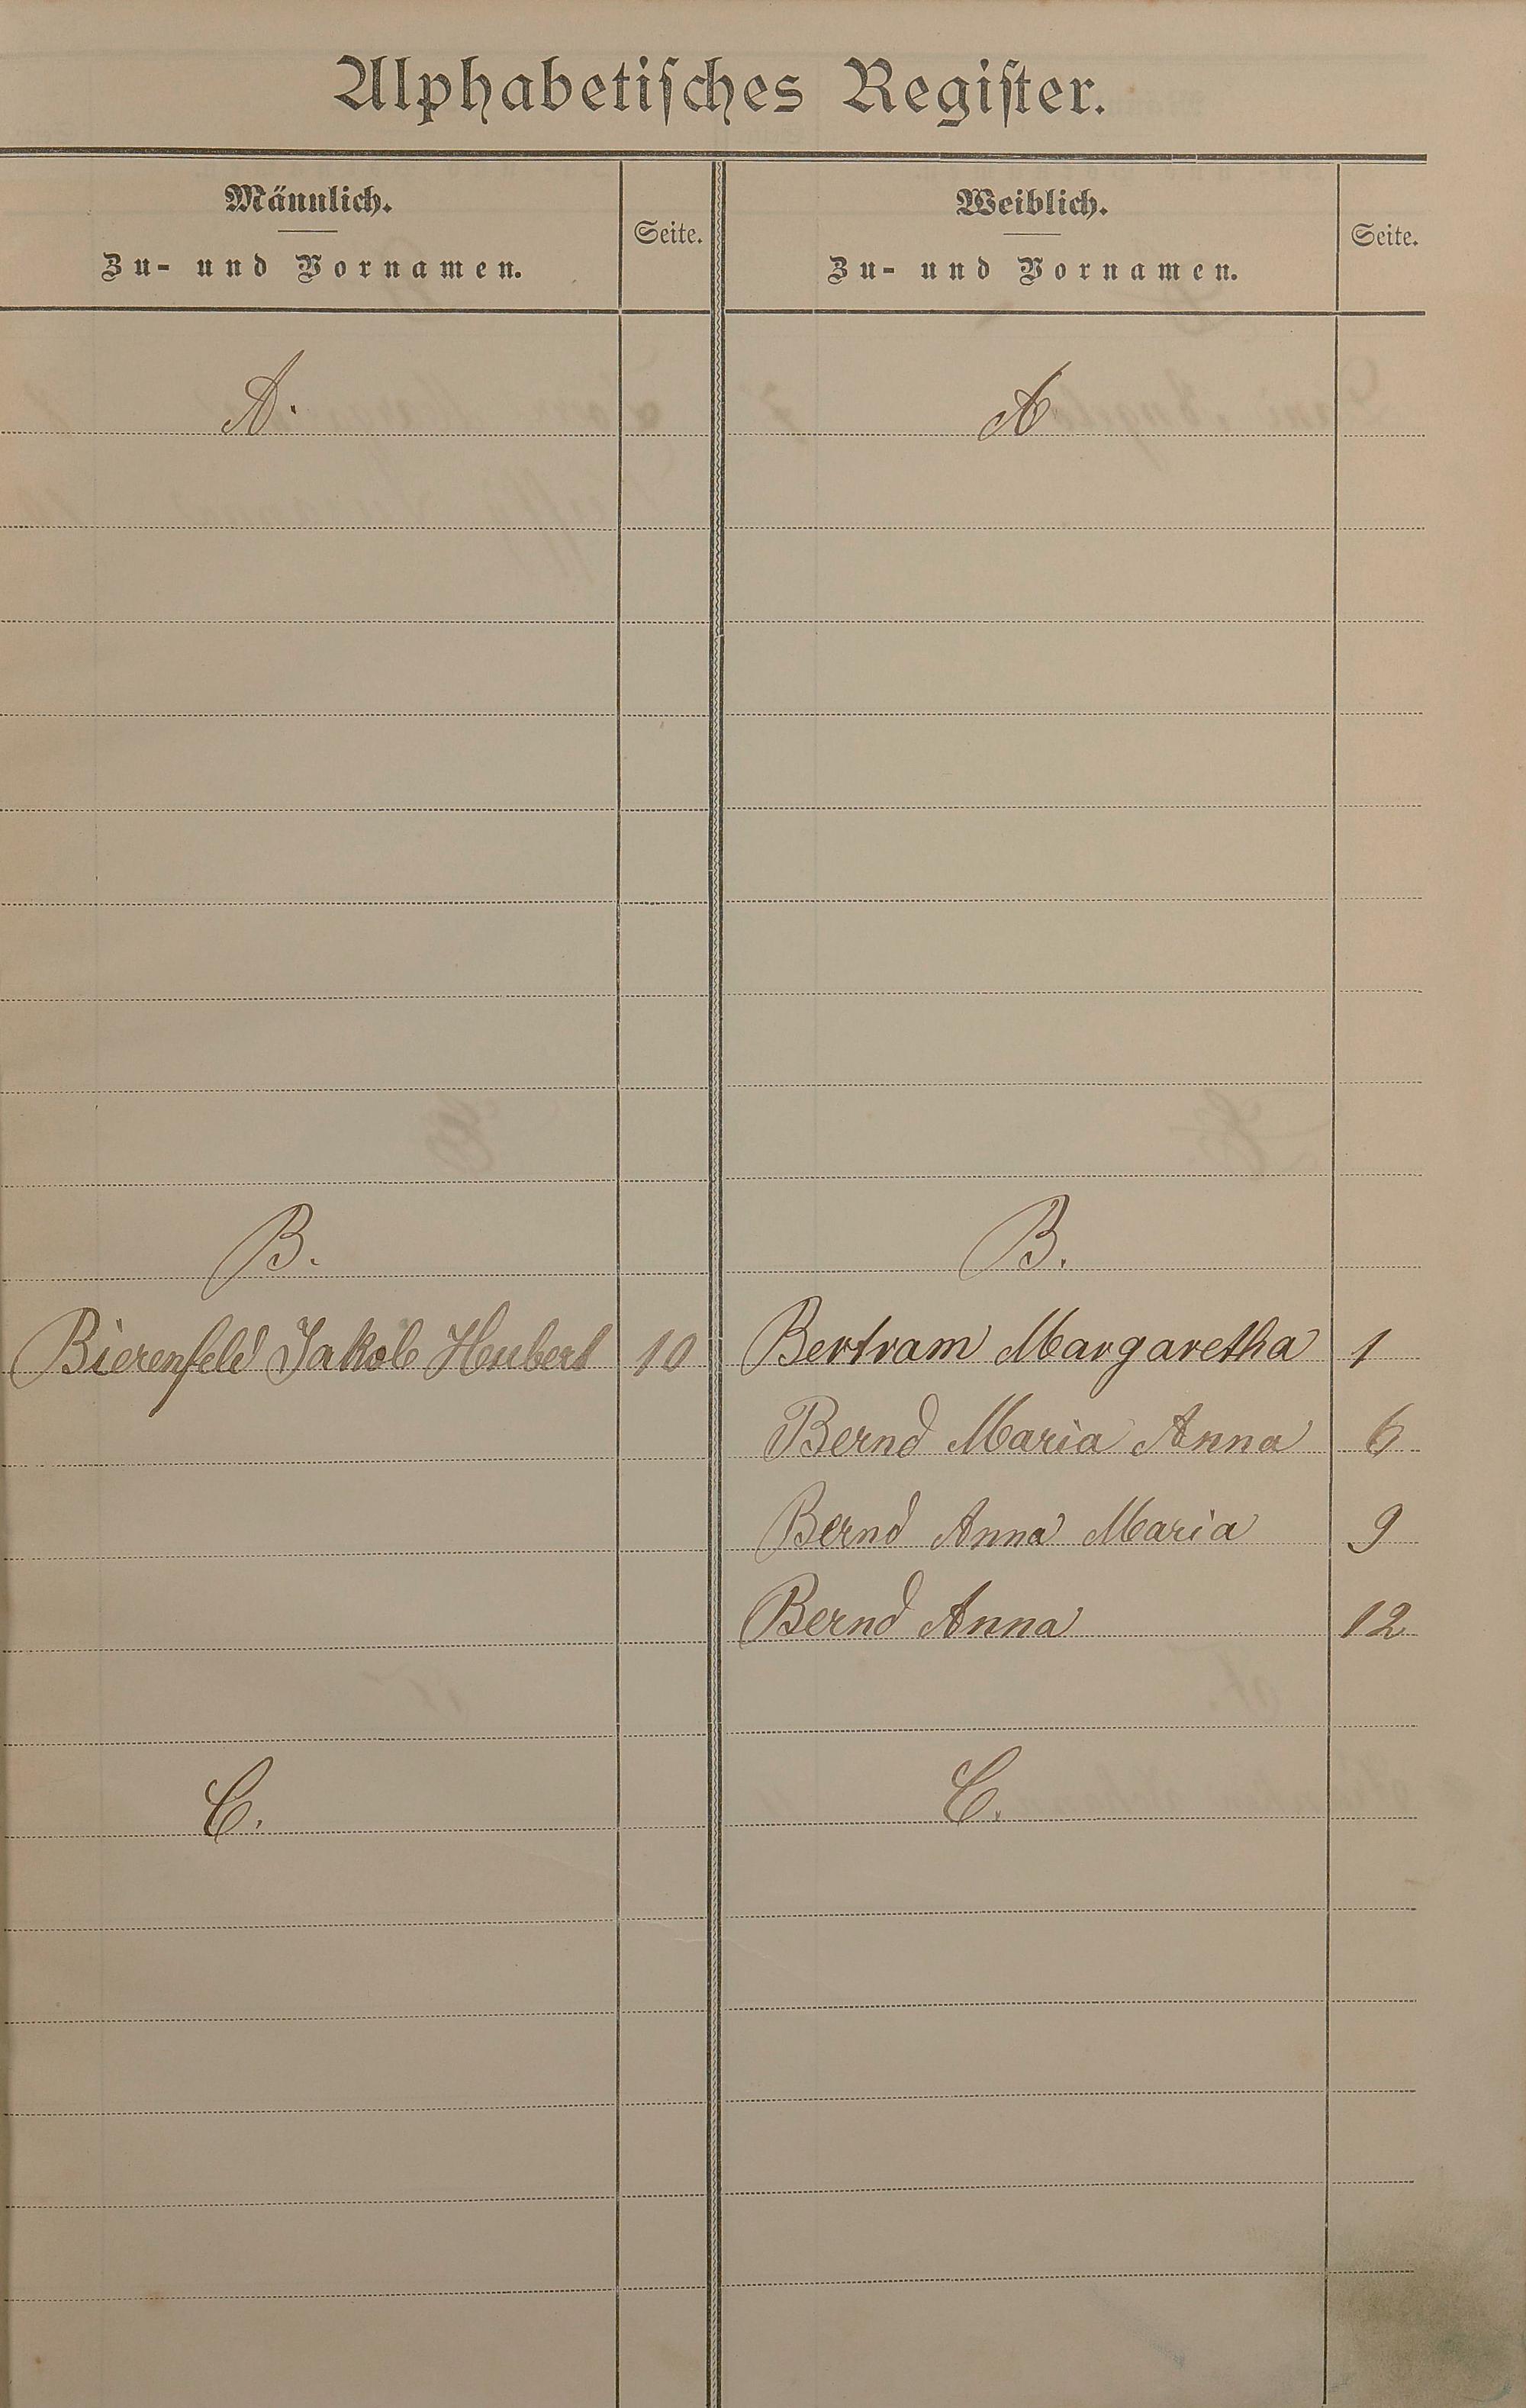 Alphabetisches Register.
Männlich.
Zu- und Vornamen.
Seite.
Weiblich.
Zu- und Vornamen.
Seite.
A.
A
B.
B.
Bierenfeld Jakob Hubert 10
Bertram Margaretha 1
Bernd Maria Anna 6
Bernd Anna Maria 9
Bernd Anna 12
C.
C.